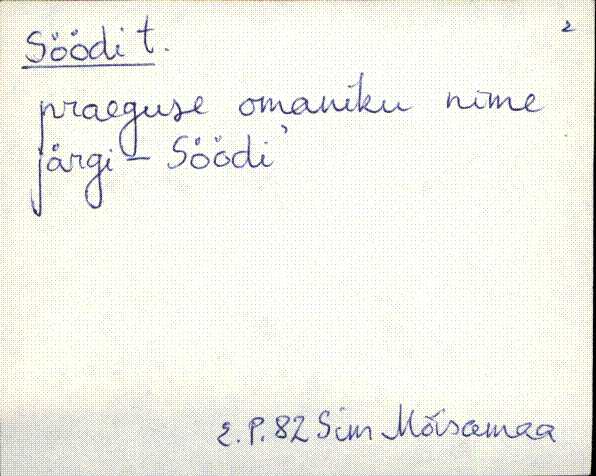 2
Söödi t.
praeguse omaniku nime
järgi – Söödi'
E.P. 82 Sim Mõisamaa